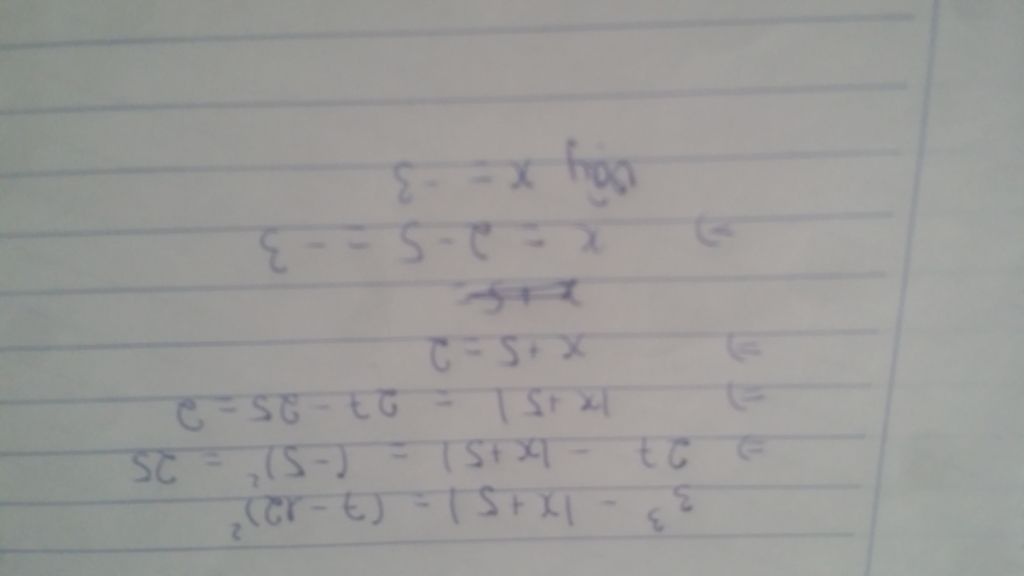 3³ - |x+5| = (7-12)²
=> 27 - |x+5| = (-5)² = 25
=> |x+5| = 27-25=2
=> x+5=2
x+5
=> x = 2-5 = -3
Vậy x = -3